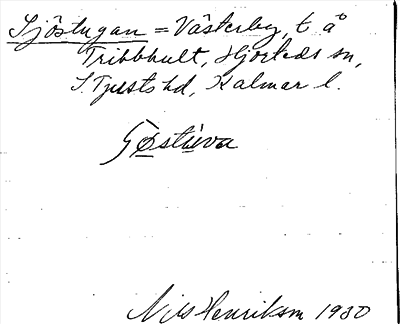 Sjöstugan = Västerby, t å
Tribbhult, Hjorteds sn,
S. Tjusts hd, Kalmar l.
Nils Henrikson 1930